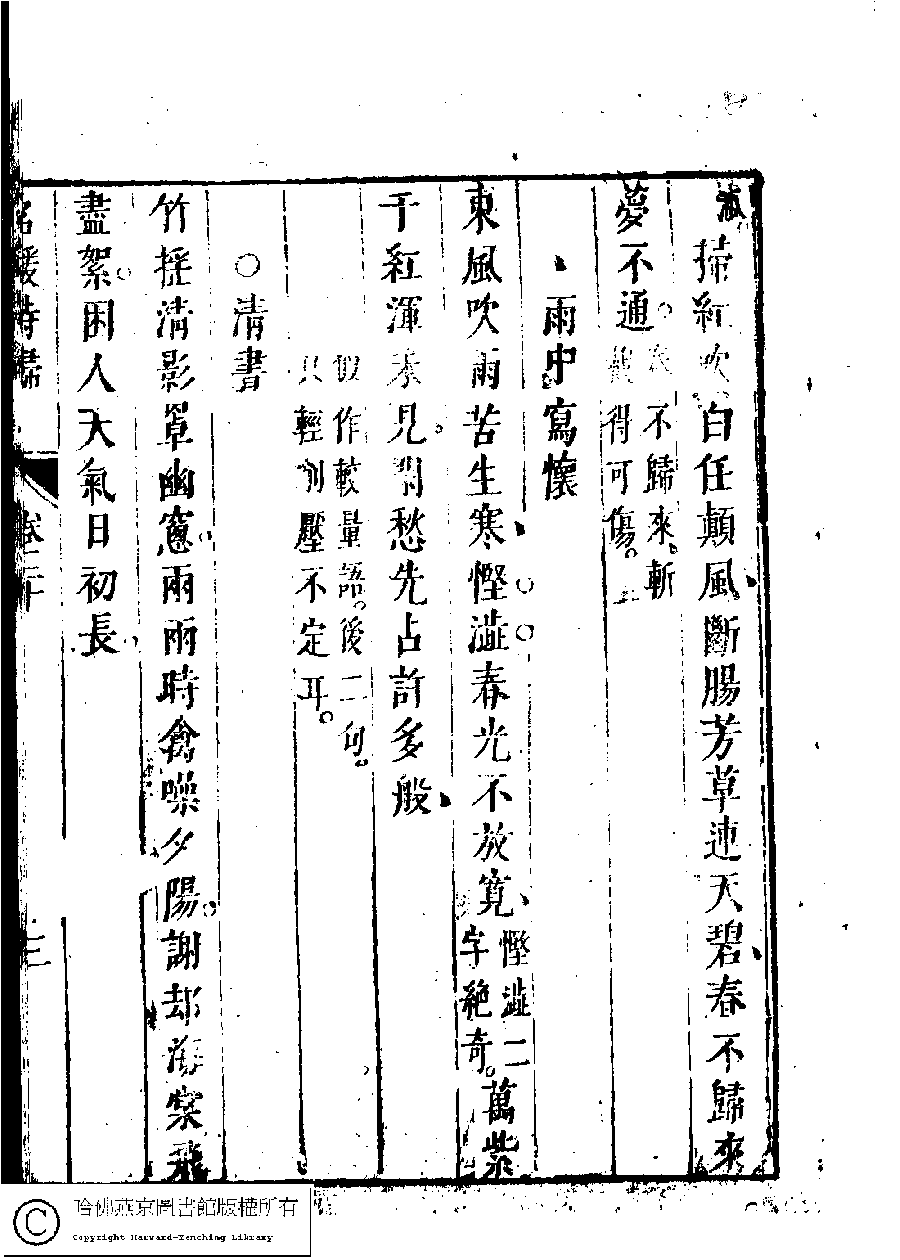 掃紅吹白任顛風斷腸芳草連天碧春不歸來
夢不通。春不歸來。斬
截得可傷。
雨中寫懷
東風吹雨苦生寒慳澁春光不放寬慳澁二
字絕奇。萬紫
千紅渾未見。閒愁先占許多般
假作較量語。後二句。
只輕壓不定耳。
○清書
竹搖清影罩幽窻。雨雨時禽噪夕陽。謝却海棠飛
盡絮。困人天氣日初長。
名媛詩歸 卷二十 三
哈佛燕京圖書館版權所有
Copyright Harvard-Yenching Library